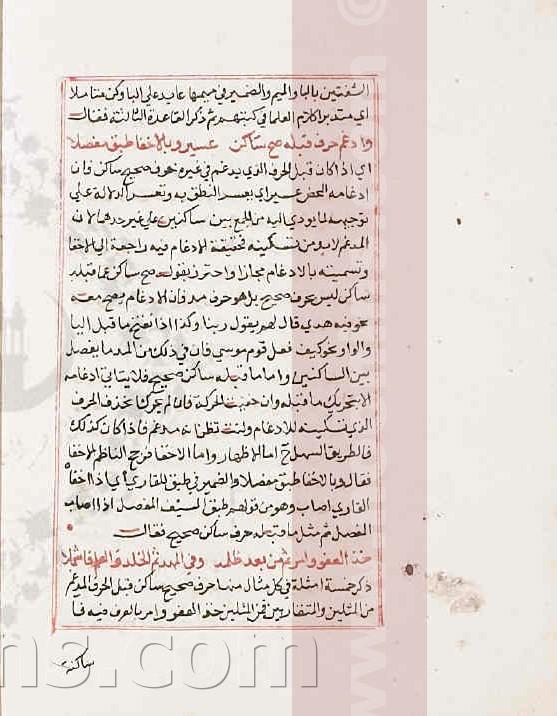 الشفتين بالبا والميم والضمير في ميمها عايد على البا وكن متاملا
اي متدبرا كلام العلما في كتبهم ثم ذكر القاعدة الثالثة فقال
وادغام حرف قبله صح ساكن عسير وبالاخفا طبق مفصلا
اي اذا كان قبل الحرف الذي يدغم في غيره حرف صحيح ساكن فان
ادغامه المحض عسير اي يعسر النطق به وتعسر الدلالة على
توجيهه لما يودي اليه من الجمع بين ساكنين على غير حدهما لانه
المدغم لابد من تسكينه فحقيقة الادغام فيه راجعة الى الاخفا
وتسميته بالادغام مجازا واحترز بقوله صح ساكن عما قبله
ساكن ليس بحرف صحيح بل هو حرف مد فان الادغام يصح معه
نحو فيه هدي قال لهم يقول ربنا وكذا اذا انفتح ما قبل اليا
والواو نحو كيف فعل قوم موسي فان في ذلك من المد ما يفصل
بين الساكنين واما ما قبله ساكن صحيح فلا يتاتي ادغامه
الا بتحريك ما قبله وان خفيت الحركة فان لم تحرك انحذف الحرف
الذي تسكينه للادغام وانت تظن انه مدغم فاذا كان كذلك
فالطريق السهل اما الاظهار واما الاخفا فرجح الناظم الاخفا
فقال وبالاخفا طبق مفصلا والضمير في طبق للقاري اي اذا اخفا
القاري اصاب وهو من قولهم طبق السيف المفصل اذا اصاب
الفصل ثم مثل ما قبله حرف ساكن صحيح فقال
خذ العفو وامر ثم من بعد ظلمه وفي المهد ثم الخلد والعلم فاشملا
ذكر خمسة امثلة في كل مثال منها حرف صحيح ساكن قبل الحرف المدغم
من المثلين والمتقاربين فمن المثلين خذ العفو وامر بالعرف فيه فا
ساكنة
ns.com
©